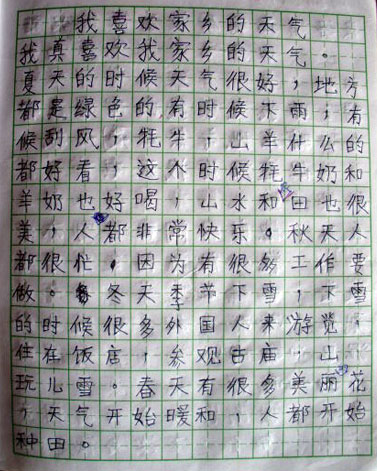 我喜欢家乡的天气
我真喜欢我家乡的天气。
夏天的时候天气很好，地方
都是绿色的有时候下雨；有
候刮风，牦牛，山羊什么的
都好看，这个时候牦牛奶和
羊奶也好喝，山水和田也很
美，人都非常快乐。秋天人
都很忙，因为有很多工作要
做。冬天季节下雪，下雪
的时候很多外国人来游览，
住在饭店，参观古庙，山，
玩儿雪。春天有很多美丽花
，天气开始暖和，人都开始
种田。